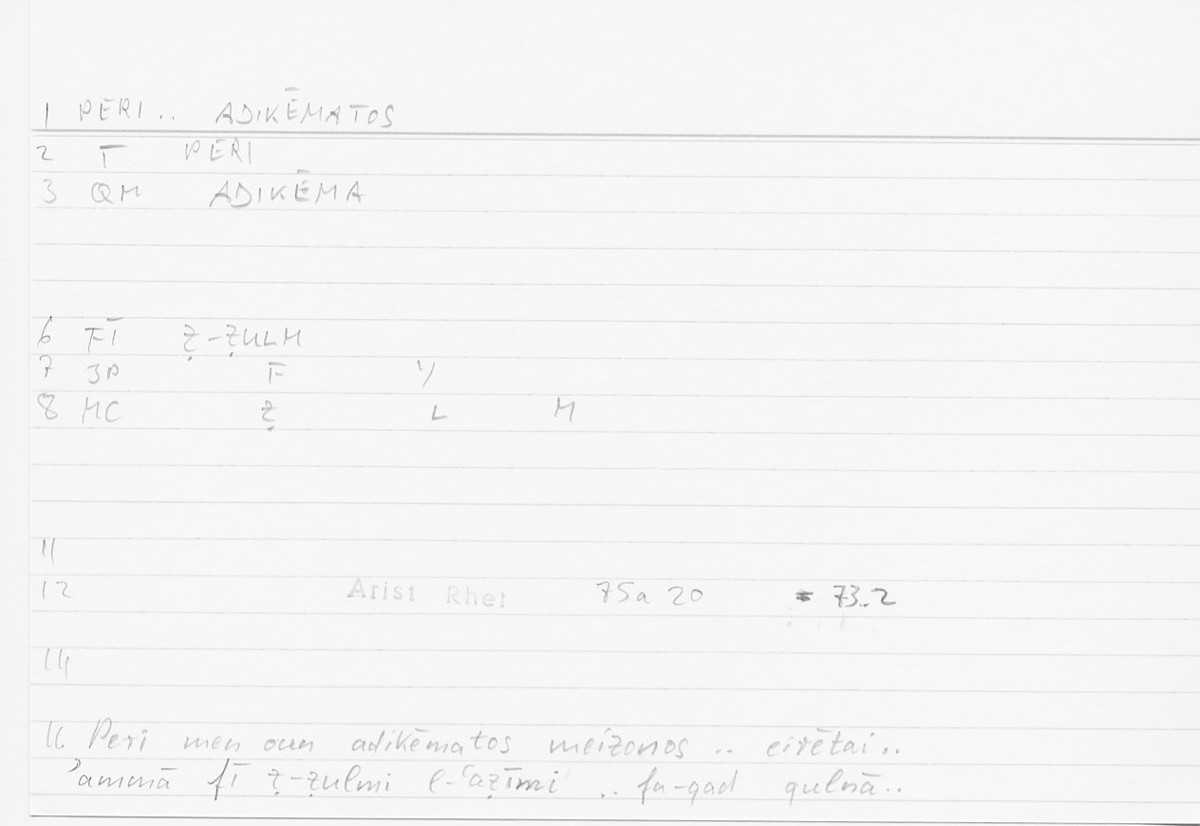 1 PERI .. ADIKĒMATOS
2 T PERI
3 QM ADIKĒMA
6 FĪ Ẓ-ẒULM
7 3P F Y
8 MC Ẓ L M
11
12 Arist Rhet 75a 20 = 73.2
14
16 Peri men oun adikēmatos meizonos .. eirētai..
ʾammā fī ẓ-ẓulmi l-ʿaẓīmi .. fa-qad qulnā..